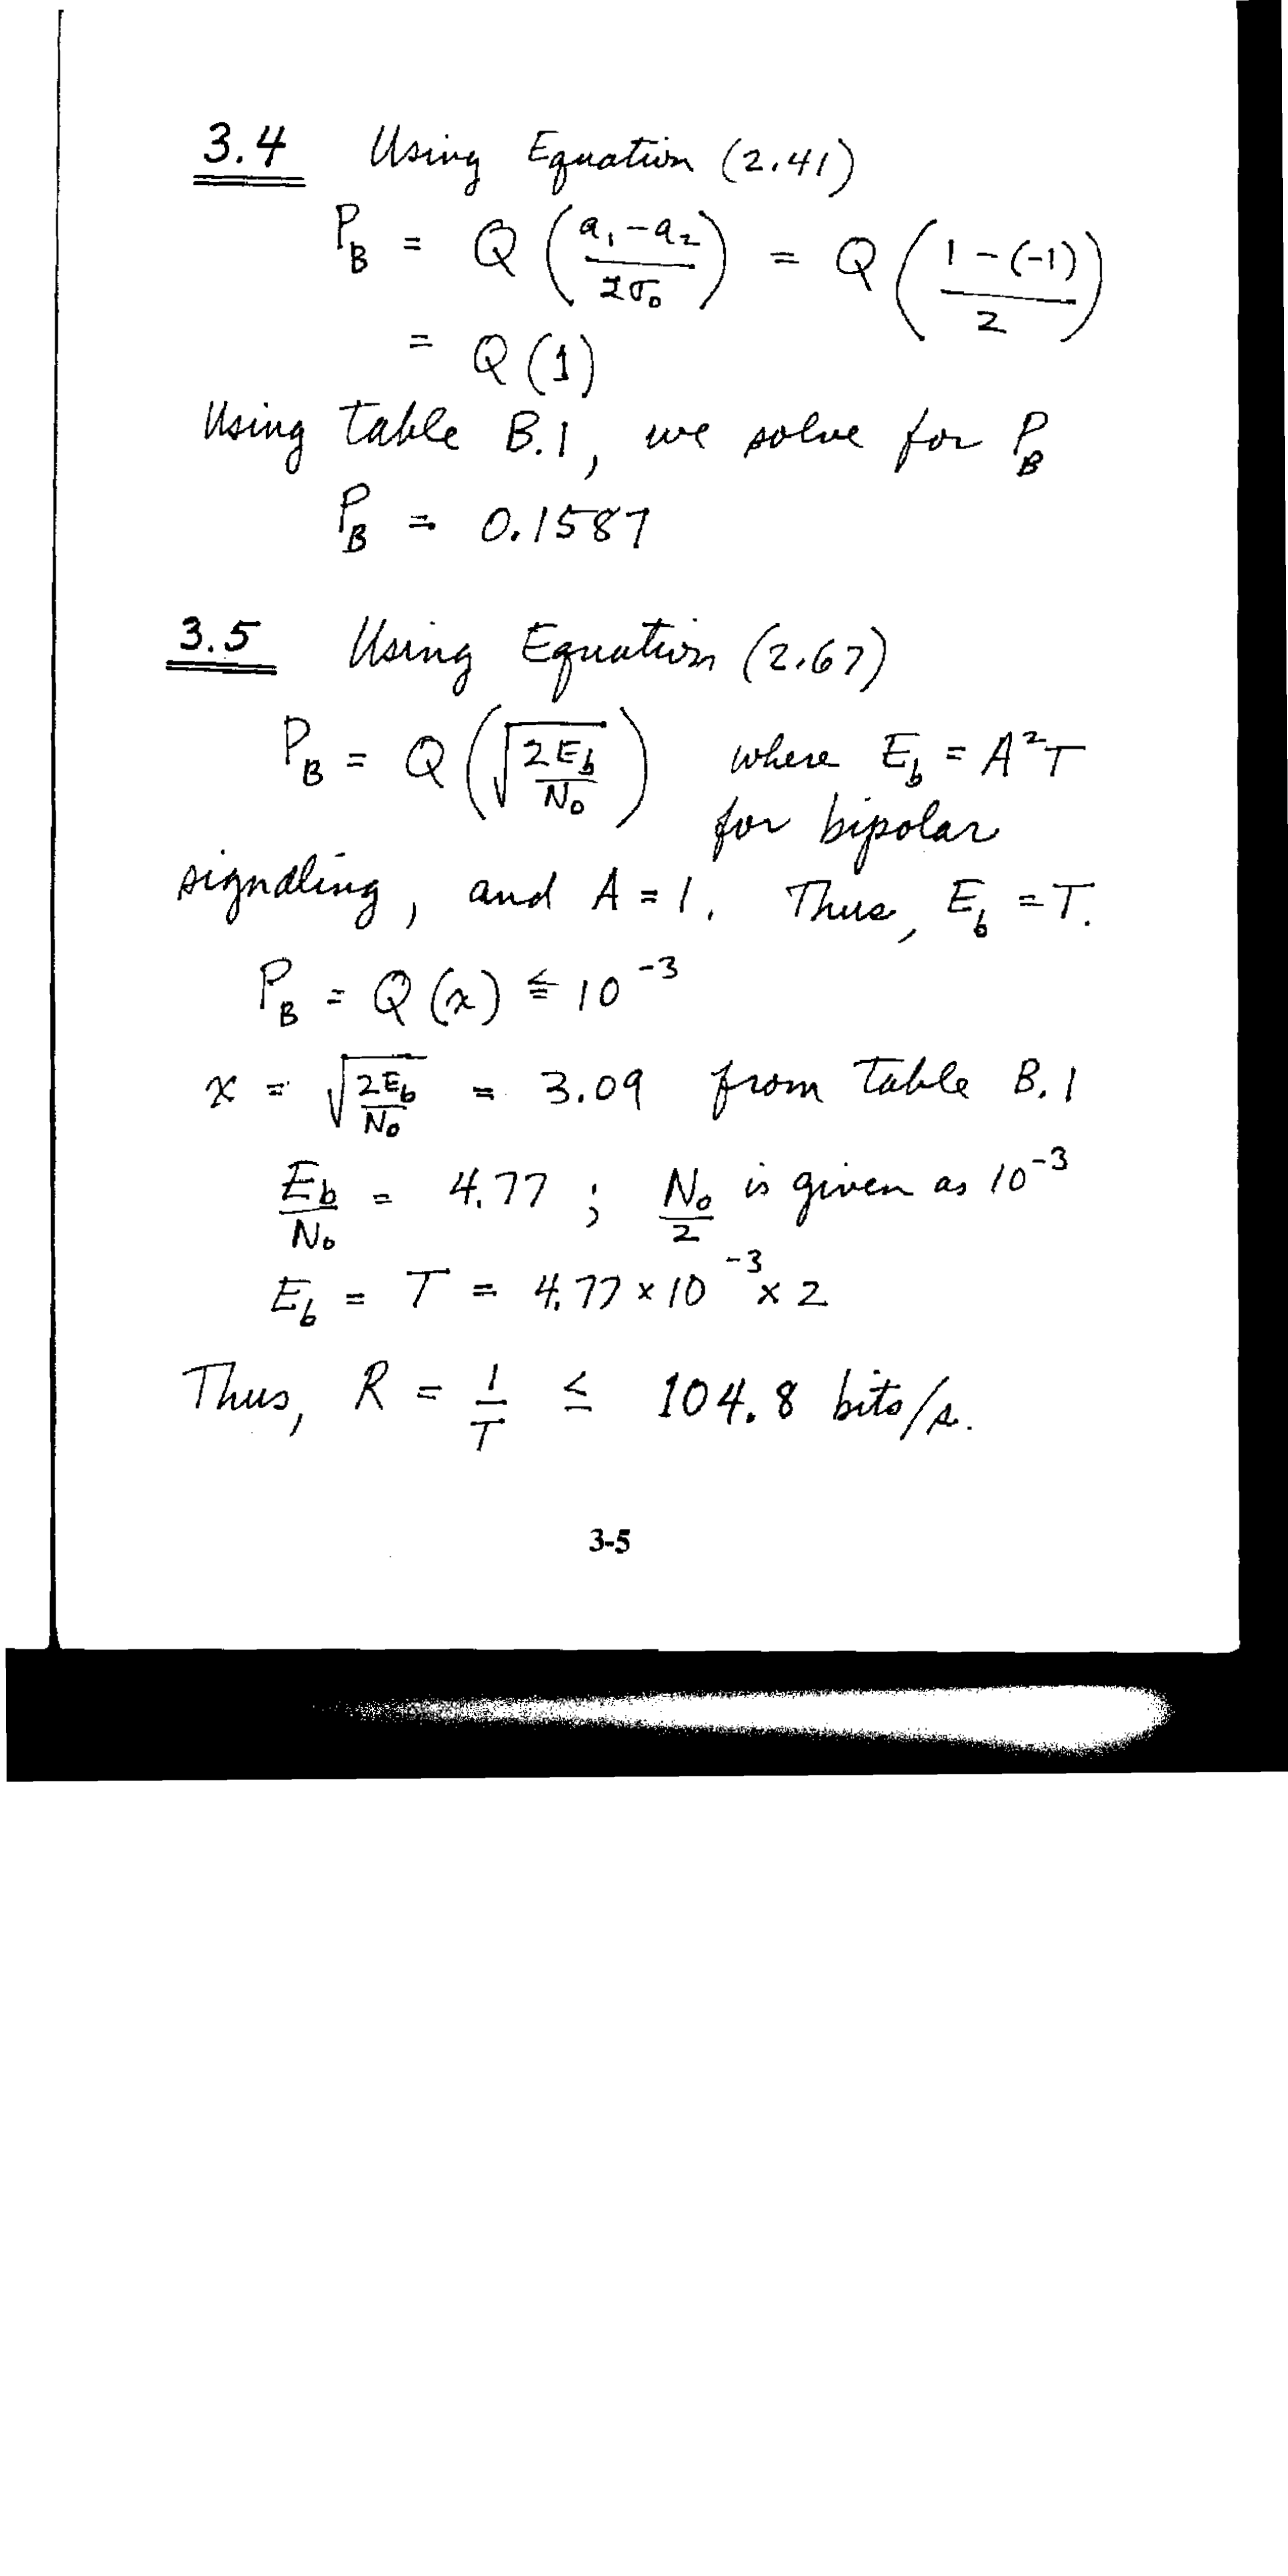 3.4 Using Equation (2.41)
P_B = Q((a₁ - a₂)/(2σ₀)) = Q((1 - (-1))/2)
= Q(1)
Using Table B.1, we solve for P_B
P_B = 0.1587
3.5 Using Equation (2.67)
P_B = Q(√(2E_b/N₀)) where E_b = A²T
for bipolar
signaling, and A = 1. Thus, E_b = T.
P_B = Q(x) ≤ 10⁻³
x = √(2E_b/N₀) = 3.09 from Table B.1
E_b/N₀ = 4.77 ; N₀/2 is given as 10⁻³
E_b = T = 4.77 × 10⁻³ × 2
Thus, R = 1/T ≤ 104.8 bits/s.
3-5